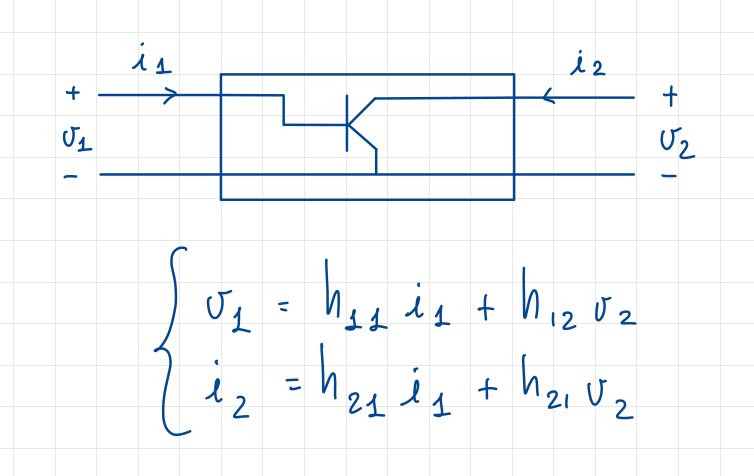 i₁ i₂
+ +
v₁ v₂
- -
v₁ = h₁₁ i₁ + h₁₂ v₂
i₂ = h₂₁ i₁ + h₂₁ v₂